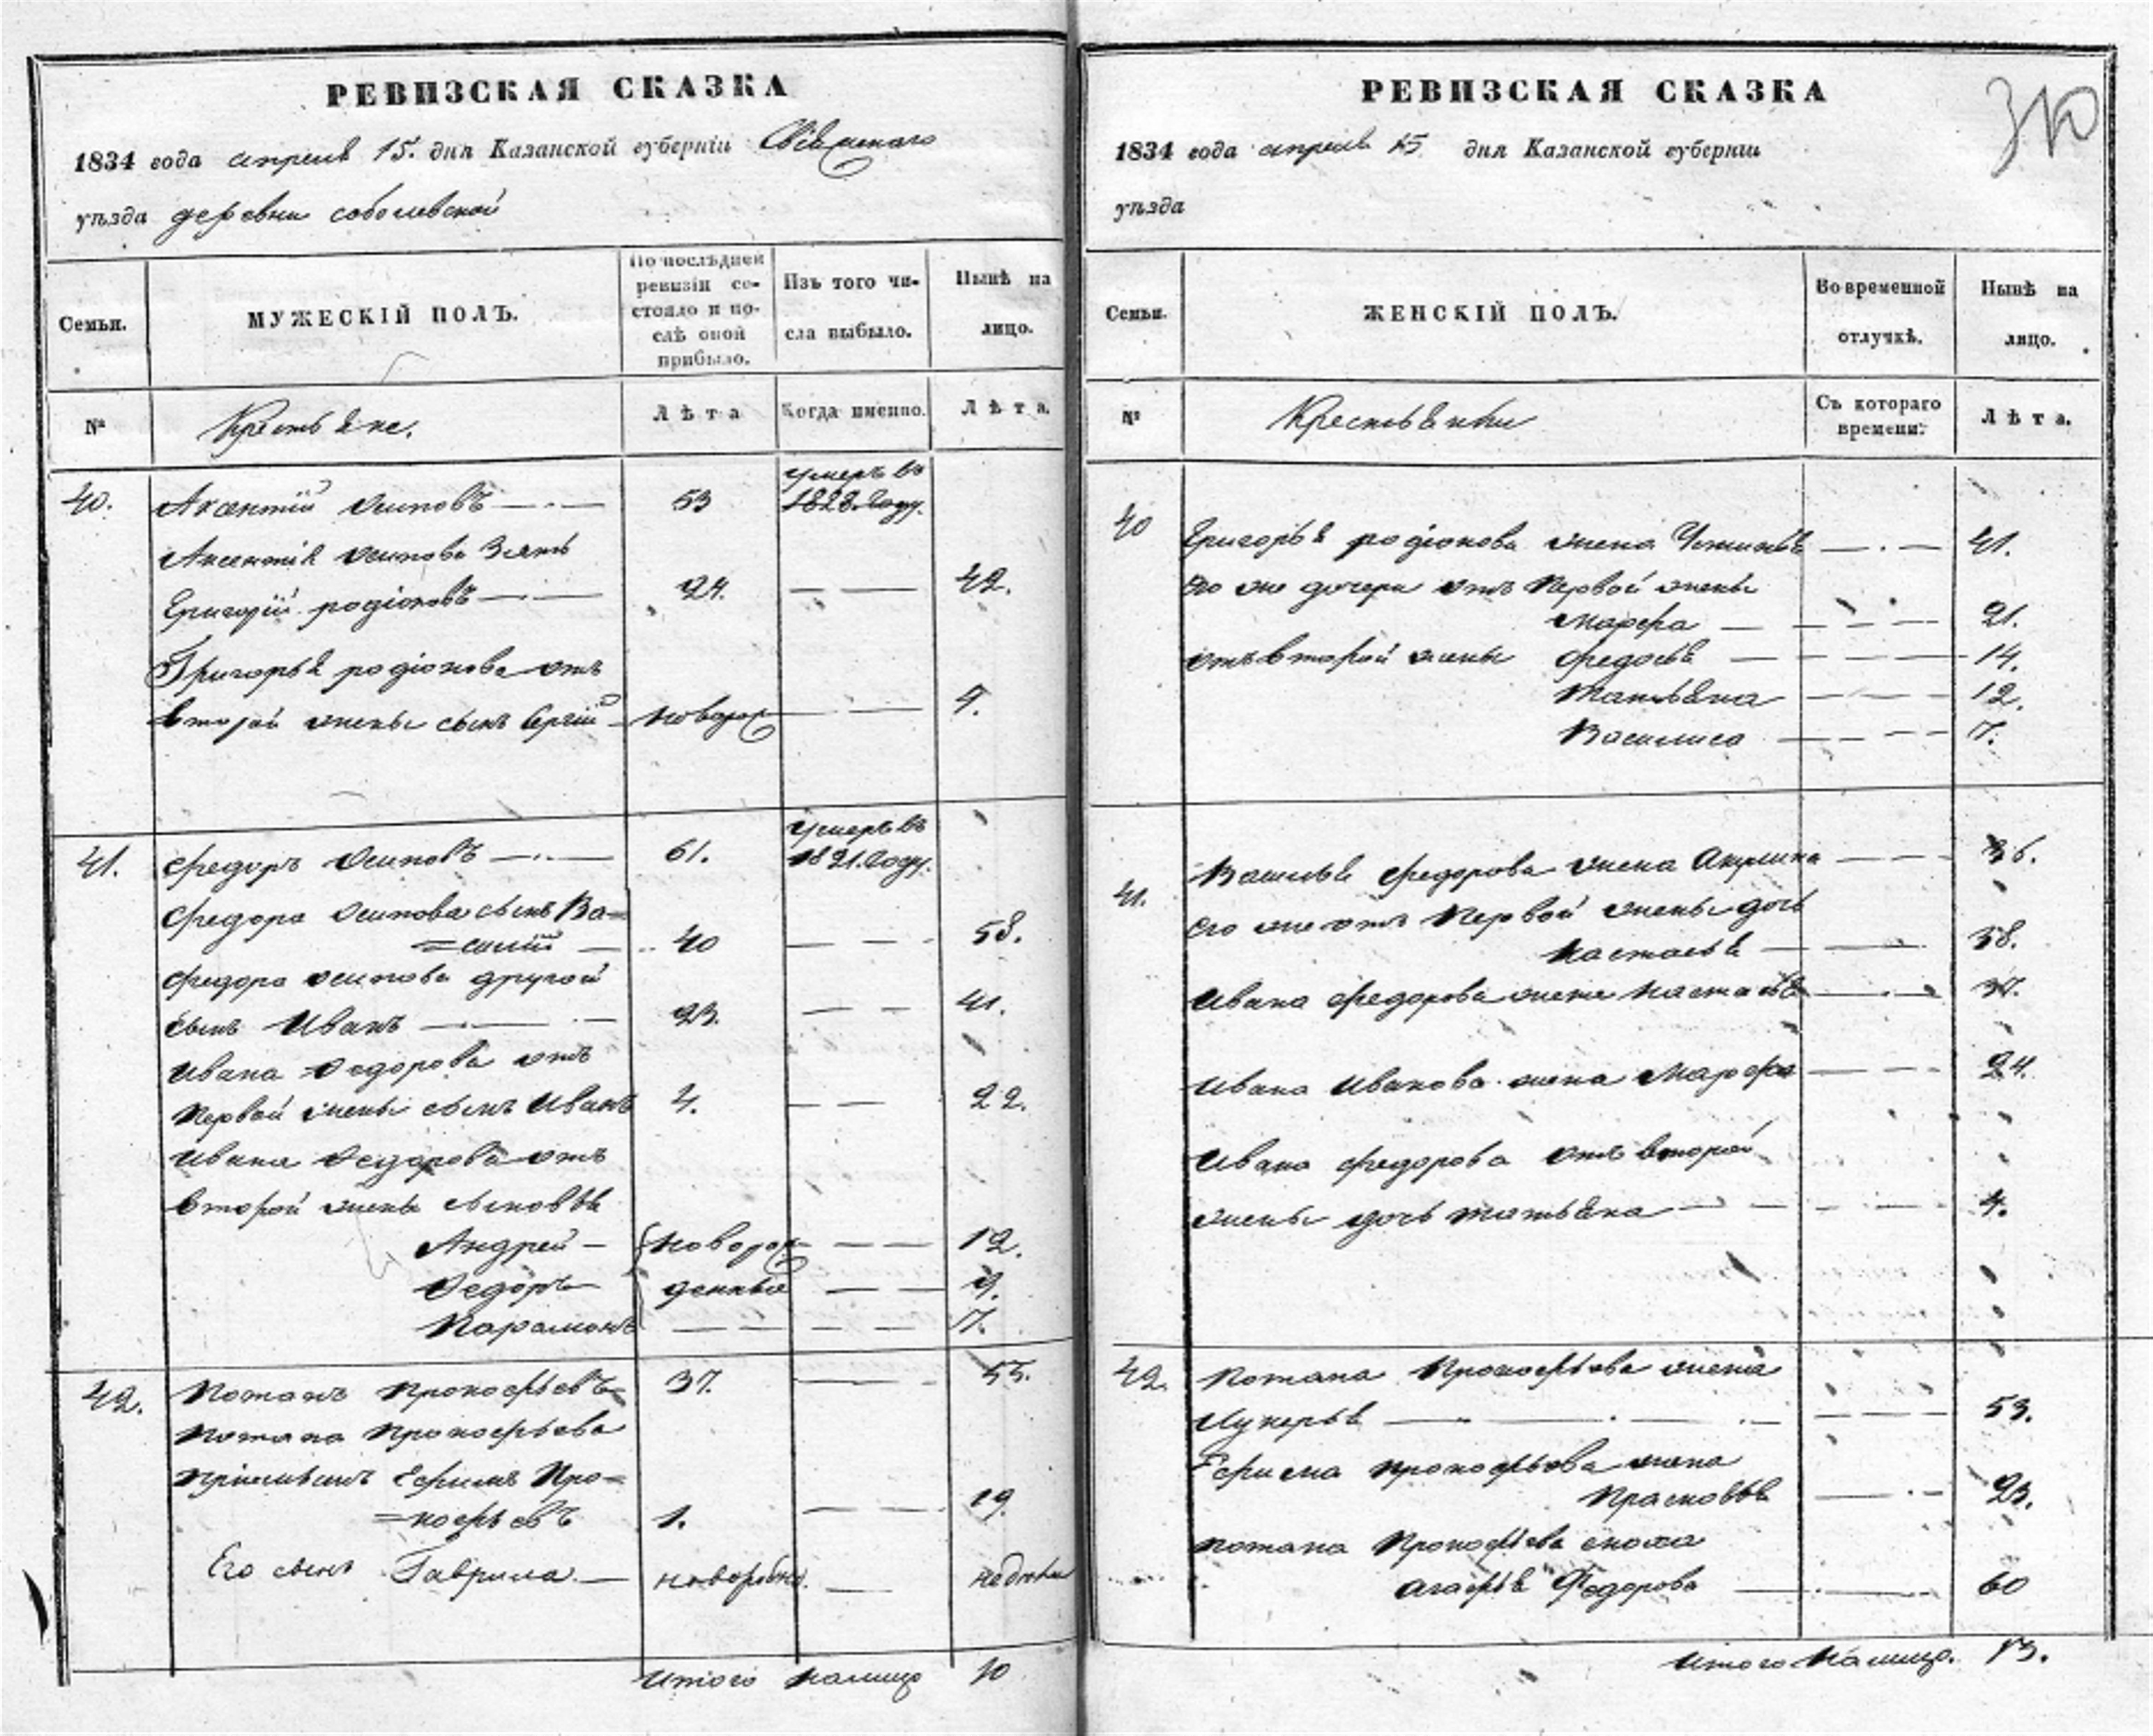 РЕВИЗСКАЯ СКАЗКА
1834 года апреля 15. дня Казанской губернiи
уѣзда деревни соболевской
Семьи.
МУЖЕСКIЙ ПОЛЪ.
По послѣдней ревизiи состояло и послѣ оной прибыло.
Изъ того числа выбыло.
Нынѣ на лицо.
№
Крестьяне.
Лѣта
Когда именно.
Лѣта.
40. Аксентiй Осиповъ 53 умеръ въ 1828. году.
Аксентiя Осипова Зять
Григорiй родiоновъ 24. 42.
Григорья родiонова отъ
второй жены сынъ Сергiй новорож 9.
41. Федоръ Осиповъ 61. умеръ въ 1821. году.
Федора Осипова сынъ Ва=
=силiй 40 58.
Федора Осипова другой
сынъ Иванъ 23. 41.
Ивана Ѳедорова отъ
Первой жены сынъ Иванъ 4. 22.
Ивана Ѳедорова отъ
второй жены сыновья
Андрей новорож 12.
Ѳедоръ денные 9.
Парамонъ 7.
42. Потапъ Прокофьевъ 37. 55.
Потапа Прокофьева
прiимышъ Ефимъ Про=
=кофьевъ 1. 19.
Его сынъ Гаврила
Итого налицо 10
РЕВИЗСКАЯ СКАЗКА
1834 года апреля 15 дня Казанской губернiи
уѣзда
Семьи.
ЖЕНСКIЙ ПОЛЪ.
Во временной отлучкѣ.
Нынѣ на лицо.
№
Крестьянки
Съ котораго времени.
Лѣта.
40 Григорья родiонова жена Устинья 41.
Его же дочери отъ Первой жены
Марфа 21.
отъ второй жены Федосья 14.
Татьяна 12.
Василиса 7.
41. Василья Федорова жена Акулина 36.
Его же отъ Первой жены дочь
Настасья
Ивана Федорова жена Настасья 37.
Ивана Иванова жена Марфа 24.
Ивана Федорова отъ второй
жены дочь Татьяна 4.
42. Потапа Прокофьева жена
Лукерья 53.
Ефима Прокофьева жена
Прасковья 23.
Потапа Прокофьева сноха
Агафья Федорова 60
Итого Налицо. 13.